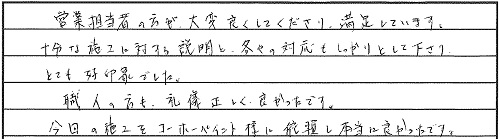 営業担当者の方が、大変良くしてくださり、満足しています。
十分な施工に対する説明と、各々の対応もしっかりとして下さり、
とても好印象でした。
職人の方も、礼儀正しく、良かったです。
今回の施工をユーホーペイント様に依頼し本当に良かったです。